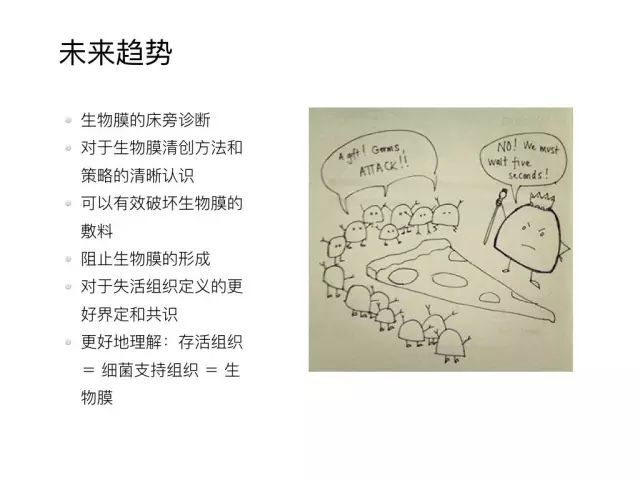 未来趋势
生物膜的床旁诊断
对于生物膜清创方法和
策略的清晰认识
可以有效破坏生物膜的
敷料
阻止生物膜的形成
对于失活组织定义的更
好界定和共识
更好地理解：存活组织
＝ 细菌支持组织 ＝ 生
物膜
A gift! Germs,
ATTACK!!
NO! We must
wait five
seconds!